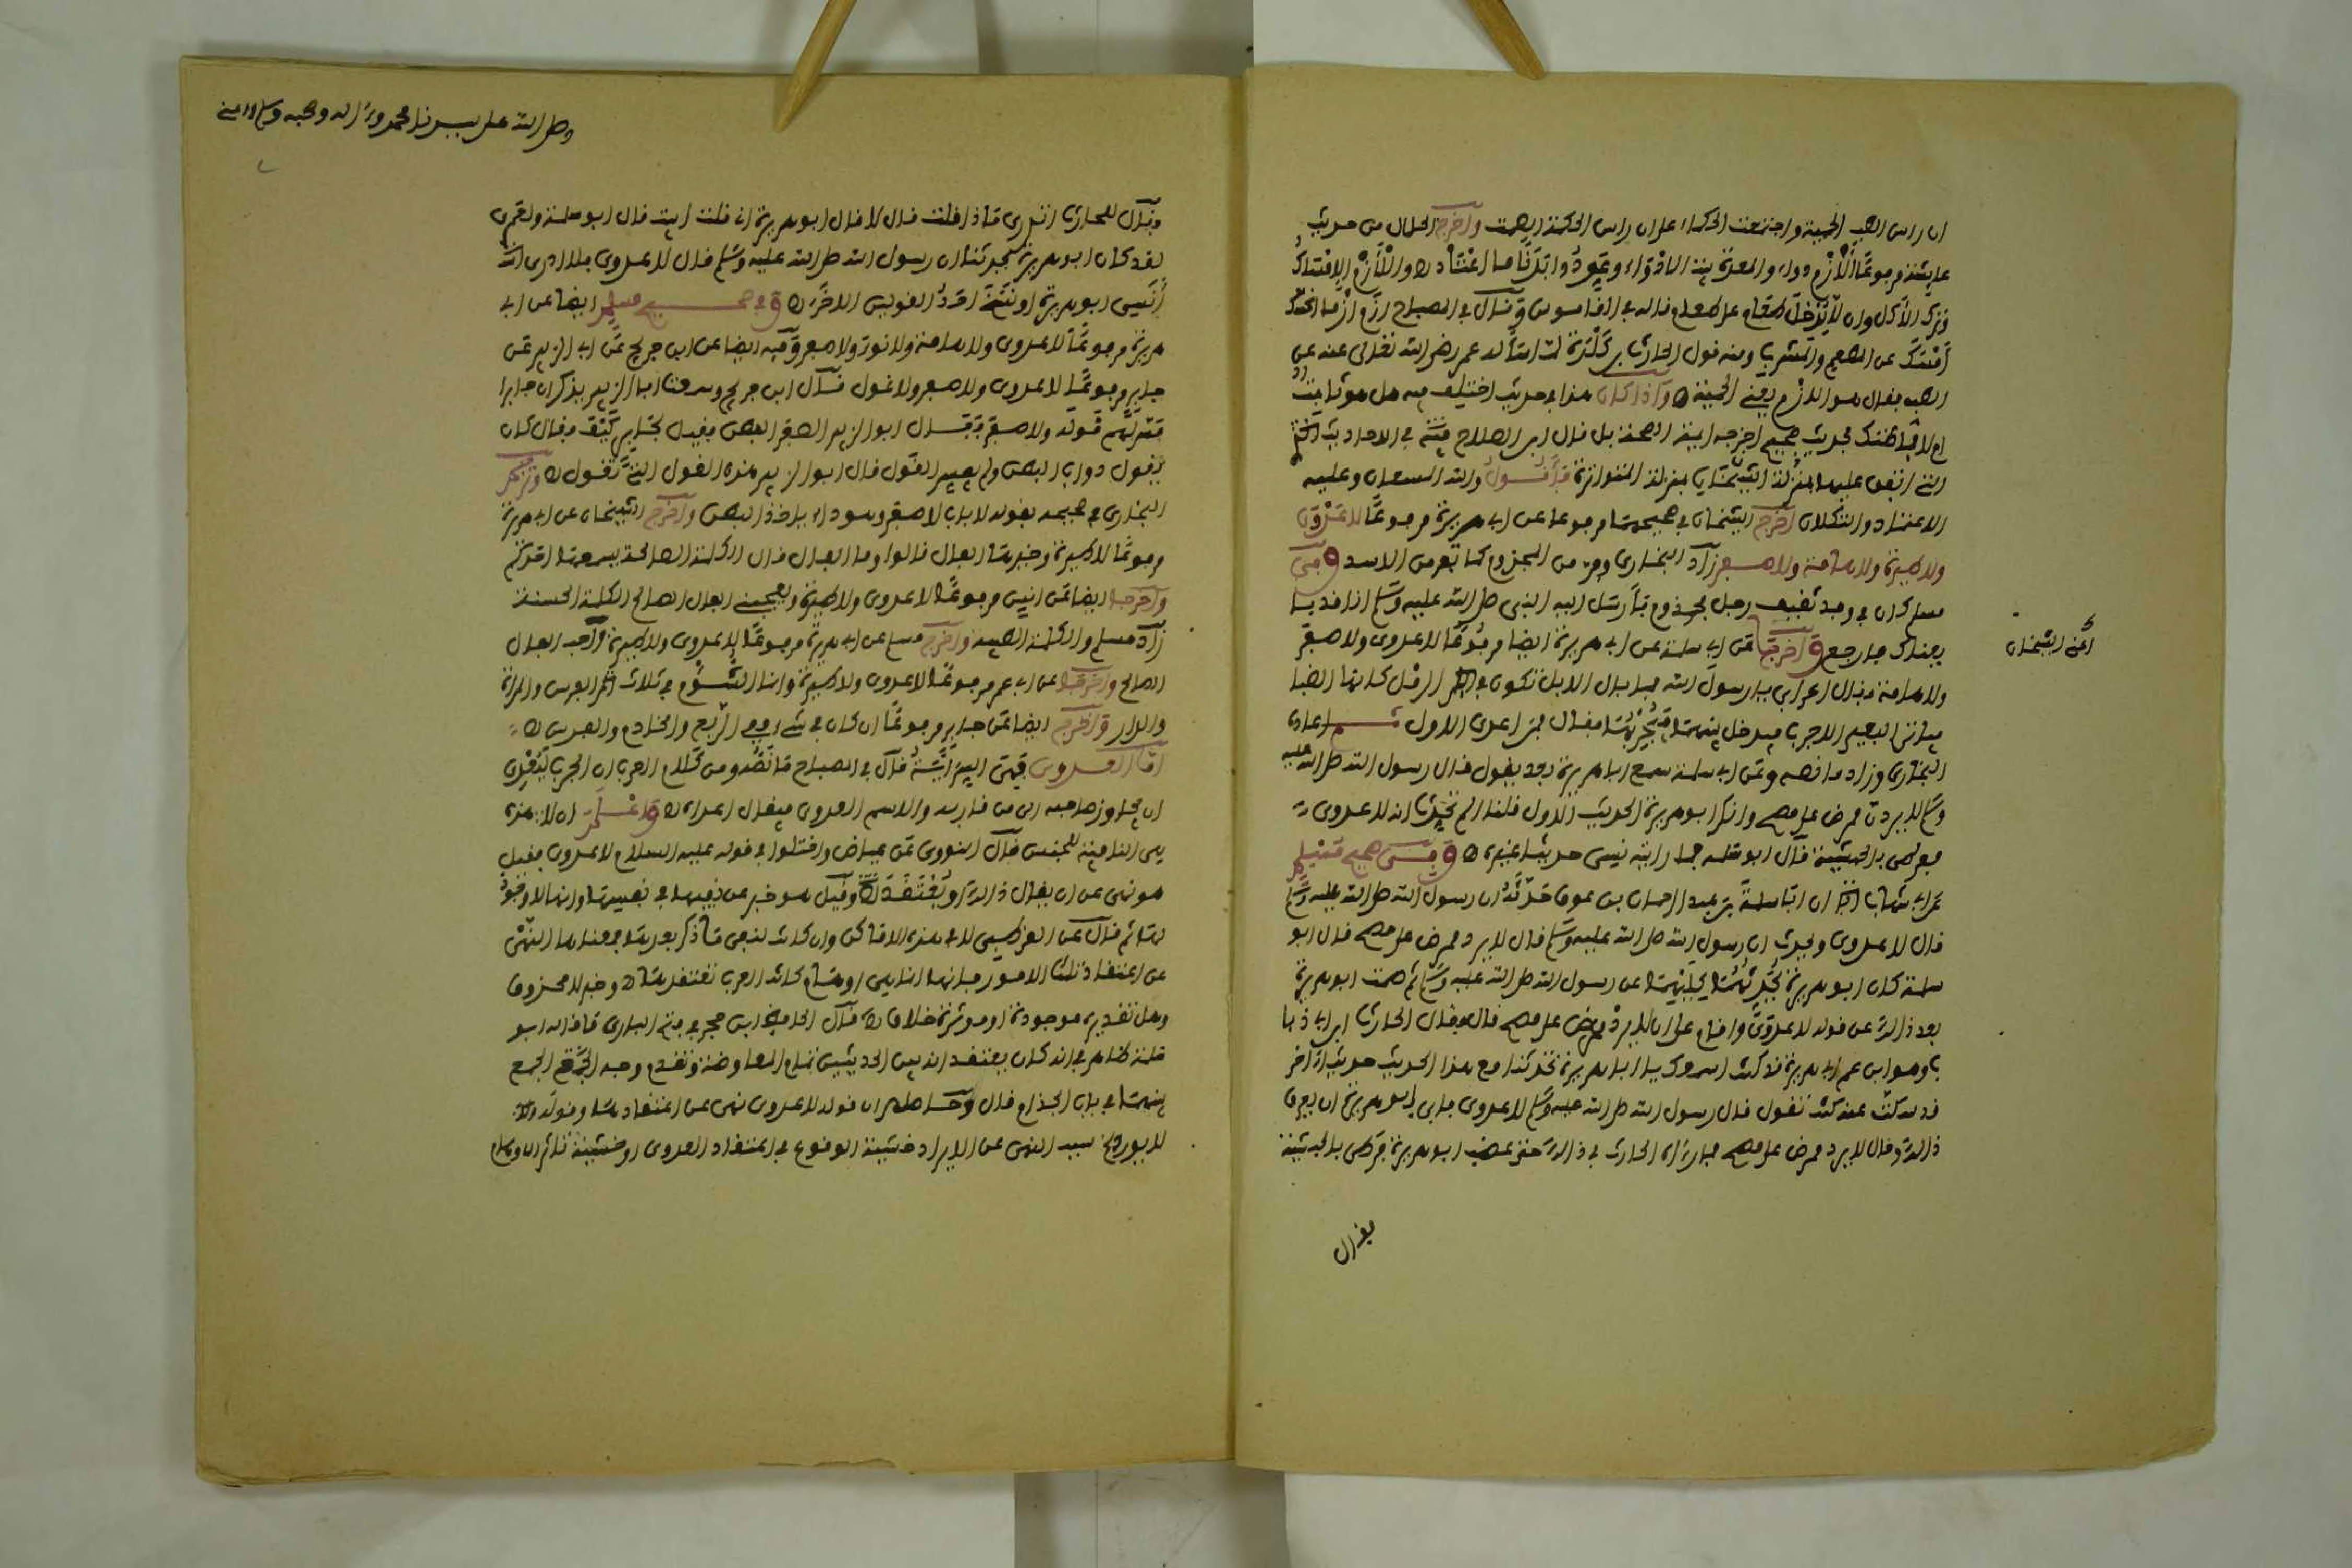 ان راس الطب الحمية واجتمعت الحكماء على ان راس الحكمة الصمت واخرج الخلال من حديث
عايشة مرفوعًا الأزم دواء والمعدة بيت الادواء وعودوا بدنا ما اعتاد والأزم الامساك
وترك الأكل وان لا يدخل طعام على طعام قاله في القاموس وقال في المصباح ازم ازما
امسك عن المطعم والمشرب ومنه قول الحارث بن كلدة لما سأله عمر رضي الله تعالى عنه عن
الطب فقال هو الازم يعني الحمية واذا كان هذا في حديث اختلف فيه هل هو ثابت
ام لا فما ظنك بحديث صحيح اخرجه ايمة الصحة بل قال ابن الصلاح في الاحاديث
التي اتفق عليها الشيخان بمنزلة المتواترة فأقول والله المستعان وعليه
الاعتماد والتكلان اخرج الشيخان في صحيحهما مرفوعا عن ابي هريرة مرفوعًا لا عدوى
ولا طيرة ولا هامة ولا صفر زاد البخاري وفر من المجذوم كما تفر من الاسد وفي
مسلم كان في وفد ثقيف رجل مجذوم فأرسل اليه النبي صلى الله عليه وسلم انا قد با
يعناك فارجع واخرجا عن ابي سلمة عن ابي هريرة ايضا مرفوعًا لا عدوى ولا صفر
اعني الشيخان
ولا هامة فقال اعرابي يا رسول الله فما بال الابل تكون في الرمل كانها الظبا
فياتي البعير الاجرب فيدخل بينها فيجربها فقال فمن اعدى الاول
البخاري وزاد ما نصه وعن ابي سلمة سمع ابا هريرة بعد يقول قال رسول الله صلى الله عليه
وسلم لا يوردن ممرض على مصح وانكر ابو هريرة الحديث الاول قلنا الم تحدث انه لا عدوى
فرطن بالحبشية قال ابو سلمة فما رايته نسي حديثا غيره وفي صحيح مسلم
عن ابن شهاب ان ابا سلمة بن عبد الرحمان بن عوف حدثه ان رسول الله صلى الله عليه وسلم
قال لا عدوى ويحدث ان رسول الله صلى الله عليه وسلم قال لا يورد ممرض على مصح قال ابو
سلمة كان ابو هريرة يحدثهما كليهما عن رسول الله صلى الله عليه وسلم ثم صمت ابو هريرة
بعد ذالك عن قوله لا عدوى واقام على ان لا يورد ممرض على مصح قال فقال الحارث ابن ابي ذبا
ب وهو ابن عم ابي هريرة قد كنت اسمعك يا ابا هريرة تحدثنا مع هذا الحديث حديثا اخر
قد سكت عنه كنت تقول قال رسول الله صلى الله عليه وسلم لا عدوى فابى ابو هريرة ان يعرف
ذالك وقال لا يورد ممرض على مصح فما رءاه الحارث في ذالك حتى غضب ابو هريرة فرطن بالحبشية
فقال
وصلى الله على سيدنا محمد وءاله وصحبه وسلم
فقال للحارث اتدري ماذا قلت قال لا قال ابو هريرة اني قلت ابيت قال ابو سلمة ولعمري
لقد كان ابو هريرة يحدثنا ان رسول الله صلى الله عليه وسلم قال لا عدوى فلا ادري
أنسي ابو هريرة او نسخ احد القولين الاخر وفي صحيح مسلم ايضا عن ابي
هريرة مرفوعًا لا عدوى ولا هامة ولا نوء ولا صفر وفيه ايضا عن ابن جريج عن ابي الزبير عن
جابر مرفوعًا لا عدوى ولا صفر ولا غول قال ابن جريج وسمعت ابا الزبير يذكر ان جابرا
فسر لهم قوله ولا صفر فقال ابو الزبير الصفر البطن فقيل لجابر كيف فقال كان
يقول دواب البطن ولم يفسر الغول قال ابو الزبير هذه الغول التي تغول وترجم
البخاري في صحيحه بقوله لا باب لا صفر وهو داء ياخذ البطن واخرج الشيخان عن ابي هريرة
مرفوعًا لا طيرة وخيرها الفال قالوا وما الفال قال الكلمة الصالحة يسمعها احدكم
واخرجا ايضا عن انس مرفوعًا لا عدوى ولا طيرة ويعجبني الفال الصالح الكلمة الحسنة
زاد مسلم والكلمة الطيبة واخرج مسلم عن ابي هريرة مرفوعًا لا عدوى ولا طيرة واحب الفال
الصالح واخرجا عن ابن عمر مرفوعًا لا عدوى ولا طيرة وانما الشؤم في ثلاث الفرس والمراة
والدار واخرج ايضا عن جابر مرفوعًا ان كان في شيء ففي الربع والخادم والفرس
اما العدوى قال في المصباح من كلام العرب ان الجرب ليعدي
ان يجاوز صاحبه الى من قاربه والاسم العدوى فيقال اعداه واعلم ان لا هذه
هي النافية للجنس قال النووي عن عياض واختلفوا في قوله عليه السلام لا عدوى فقيل
هو نهي عن ان يقال ذالك او يعتقد وقيل هو خبر عن نفيها في نفسها وانها لا وجود
لها ثم قال عن القرطبي لا هذه وان كانت لنفي ما ذكر بعدها فمعناها النهي
عن اعتقاد تلك الامور فانها كانت العرب تعتقدها وخبر لا محذوف
وهل تقديره موجودة او موثرة خلاف قال الحافظ ابن حجر في فتح الباري ما قاله ابو
سلمة ظاهر في انه كان يعتقد ان بين الحديثين تمام المعارضة وتقدم وجه الجمع
بينهما في باب الجذام قال وحاصله ان قوله لا عدوى نهي عن اعتقادها وقوله
لا يورد سبب النهي عن الايراد خشية الوقوع في اعتقاد العدوى او خشية تاثير الاوهام